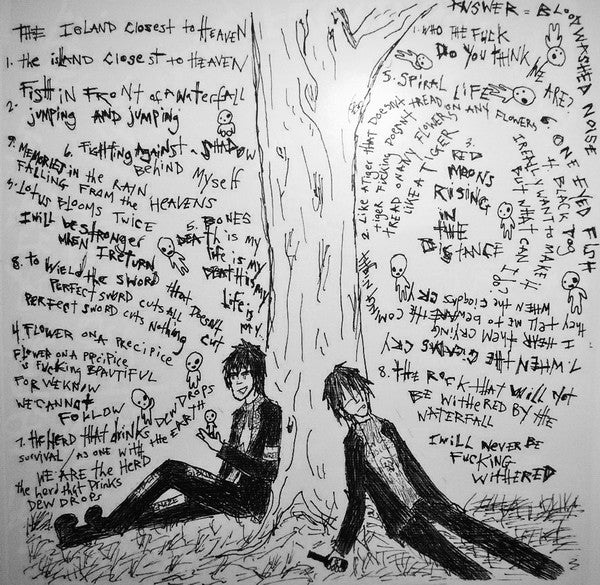 THE ISLAND CLOSEST TO HEAVEN
1. THE ISLAND CLOSEST TO HEAVEN
2. FISH IN FRONT OF A WATERFALL
JUMPING AND JUMPING
6. FIGHTING AGAINST A SHADOW
BEHIND MYSELF
9. MEMORIES IN THE RAIN
FALLING FROM THE HEAVENS
3. LOTUS BLOOMS TWICE
I WILL BE STRONGER
WHEN I RETURN
5. BONES
DEATH IS MY
LIFE IS MY
DEATH IS MY
LIFE IS MY
8. TO WIELD THE SWORD THAT DOESN'T CUT
PERFECT SWORD CUTS ALL
PERFECT SWORD CUTS NOTHING
4. FLOWER ON A PRECIPICE
FLOWER ON A PRECIPICE
IS FUCKING BEAUTIFUL
FOR WE KNOW
WE CANNOT
FOLLOW
7. THE HERD THAT DRINKS DEW DROPS
SURVIVAL / AS ONE WITH THE EARTH
WE ARE THE HERD
THE HERD THAT DRINKS
DEW DROPS
ANSWER = BLOOD WASHED NOISE
1. WHO THE FUCK
DO YOU THINK
WE ARE?
5. SPIRAL LIFE
2. LIKE A TIGER THAT DOESN'T TREAD ON ANY FLOWERS
TIGER FUCKING DOESN'T
TREAD ON ANY FLOWERS
LIKE A TIGER
3. RED
MOONS
RISING
IN
THE
DISTANCE
6. ONE EYED FISH
4. BLACK DOG
I REALLY WANT TO MAKE IT
BUT WHAT CAN I DO?
7. WHEN THE GINGKOS CRY
I HEAR THEM CRYING
THEY TELL ME TO BEWARE THE COMING
WHEN THE GINGKOS CRY
8. THE ROCK THAT WILL NOT
BE WITHERED BY THE
WATERFALL
I WILL NEVER BE
FUCKING
WITHERED